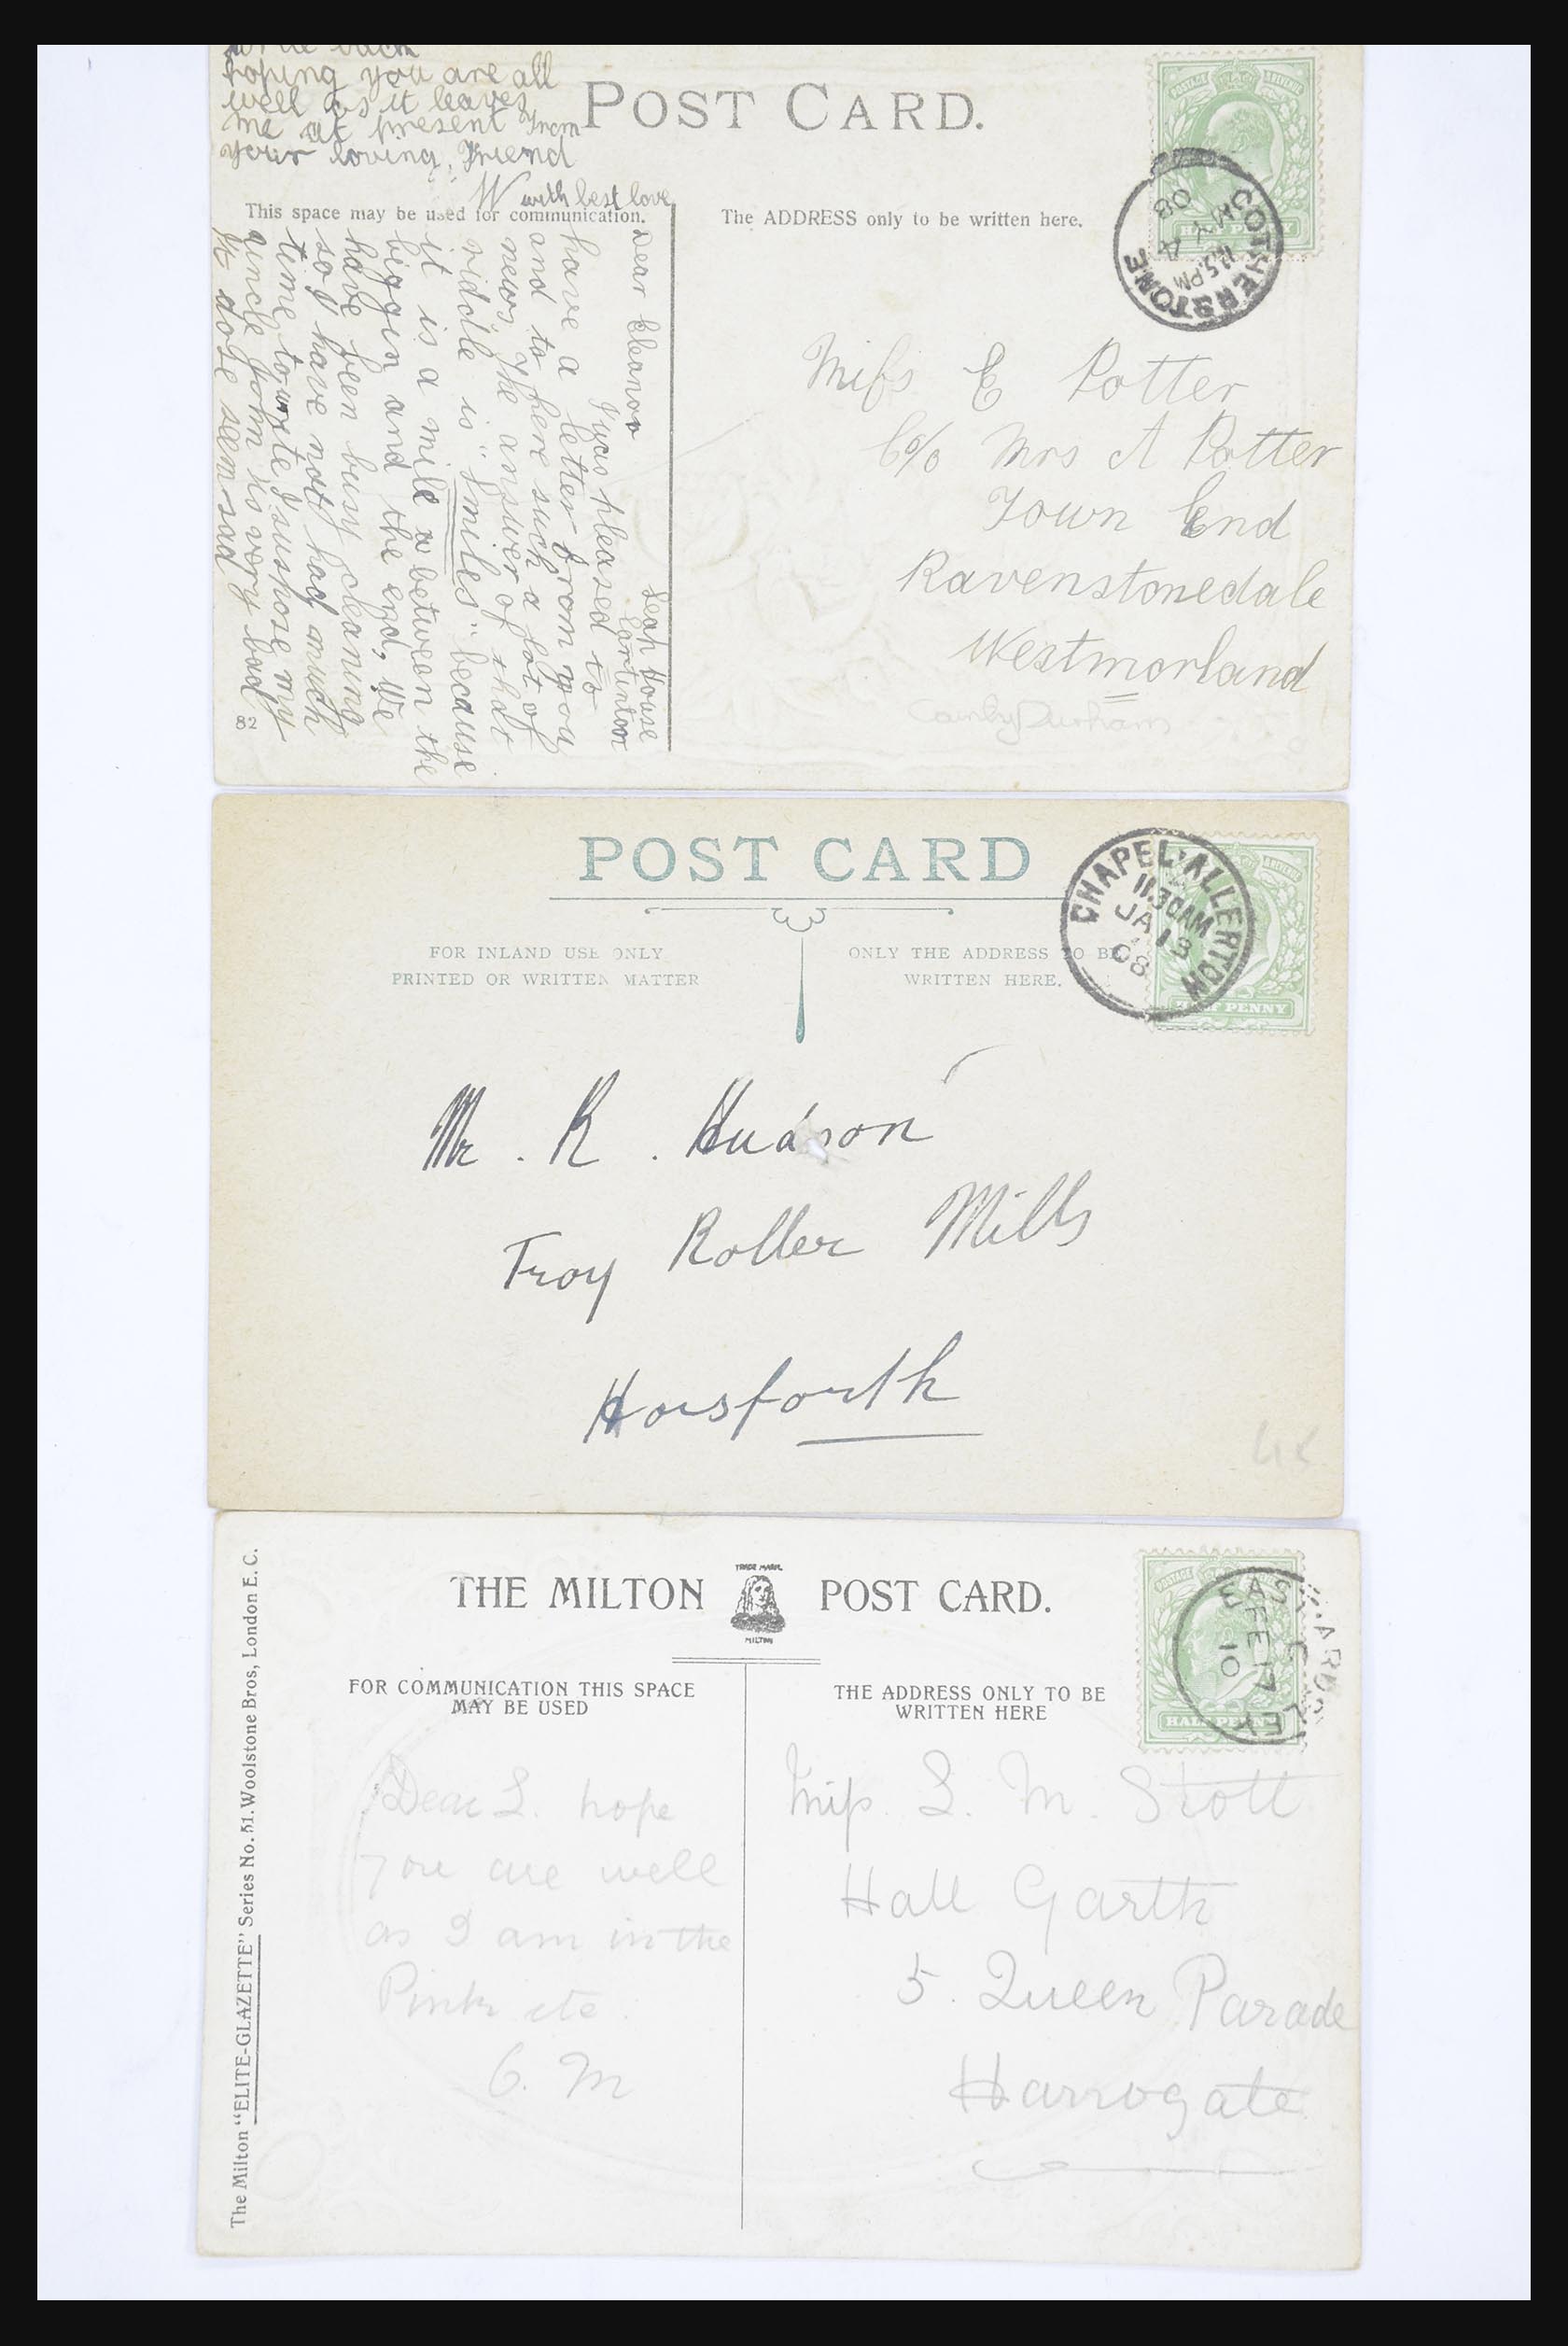 hoping you are all
well as it leaves
me at present From
your loving Friend
W with best love
POST CARD.
This space may be used for communication.
The ADDRESS only to be written here.
COTHERSTONE
11.45.PM
MY 4
08
Leah House
Lartinton
Dear Eleanor
I was pleased to
have a letter from you
and to here such a lot of
news, The answer of that
riddle is "smiles" because
it is a mile a between the
biggin and the end, We
have been busy cleaning
so I have not had much
time to write I suspose my
uncle John is very bad
It dose seem sad
82
Miss E Potter
C/o Mrs A Potter
Town End
Ravenstonedale
Westmorland
POST CARD
FOR INLAND USE ONLY
PRINTED OR WRITTEN MATTER
ONLY THE ADDRESS TO BE
WRITTEN HERE.
CHAPEL-ALLERTON
11.30AM
JA 18
08
HALF PENNY
Mr. R. Hudson
Troy Roller Mills
Horsforth
THE MILTON
TRADE MARK
MILTON
POST CARD.
FOR COMMUNICATION THIS SPACE
MAY BE USED
THE ADDRESS ONLY TO BE
WRITTEN HERE
FE 17
10
HALF PENNY
The Milton "ELITE-GLAZETTE" Series No. 51. Woolstone Bros, London E.C.
Dear L. hope
you are well
as I am in the
Pink etc.
G. M
Miss L. M. Stott
Hall Garth
5. Queen Parade
Harrogate